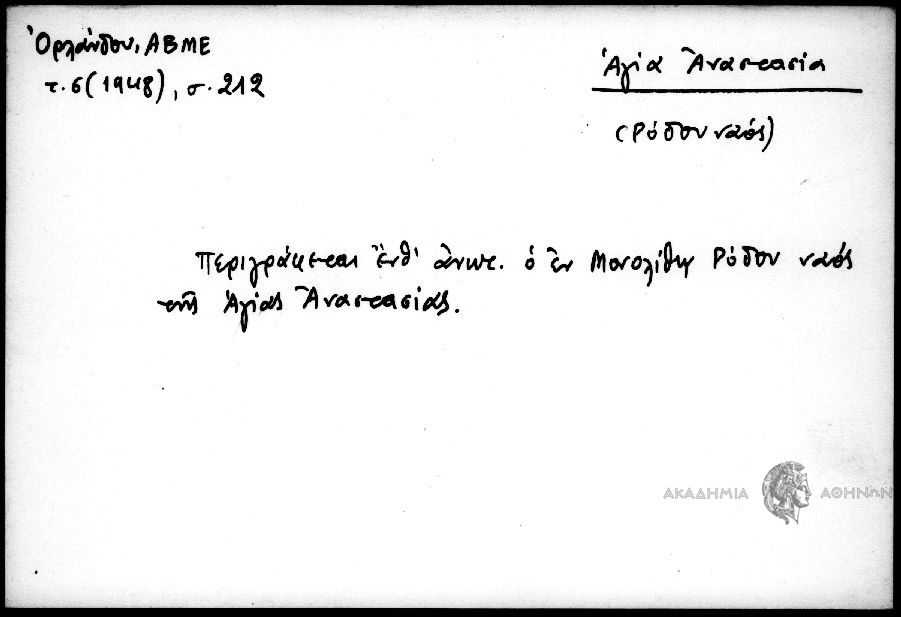 Ὀρλάνδου, ΑΒΜΕ
τ. 6 (1948), σ. 212
Ἁγία Ἀναστασία
(Ρόδου ναός)
Περιγράφεται ἔνθ' ἄνωτ. ὁ ἐν Μονολίθῳ Ρόδου ναός
τῆς Ἁγίας Ἀναστασίας.
ΑΚΑΔΗΜΙΑ ΑΘΗΝΩΝ